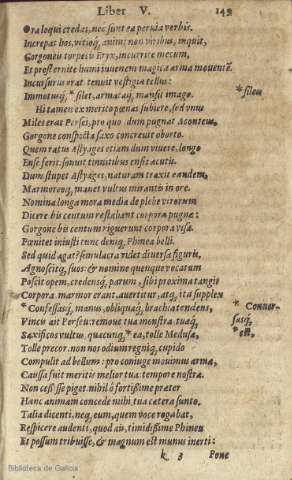 Liber V. 149
Ora loqui credas, nec sunt ea pervia verbis.
Increpat hos, vitioq́; animi non viribus, inquit,
Gorgoneis torpetis Eryx, incurrite mecum,
Et prosternite humi iuvenem magica arma moventē.
Incursurus erat: tenuit vestigia tellus:
Immotusq́; * silex, armataq́; mansit imago. * silex
Hi tamen ex merito pœnas subiere, sed vnus
Miles erat Persei, pro quo dum pugnat Aconteus,
Gorgone conspecta saxo concrevit oborto.
Quem ratus Astyages etiam dum vivere, longo
Ense ferit. sonuit tinnitibus ensis acutis.
Dum stupet Astyages, naturam traxit eandem,
Marmoreoq́; manet vultus mirantis in ore.
Nomina longa mora media de plebe virorum
Dicere. bis centum restabant corpora pugnæ:
Gorgone bis centum riguerunt corpora visa.
Pœnitet iniusti tunc deniq; Phinea belli.
Sed quid agat? simulacra videt diversa figuris,
Agnoscitq́; suos: & nomine quenque vocatum
Poscit opem, credensq́; parum, sibi proxima tangit
Corpora. marmor erant. avertitur, atq; ita supplex
* Confessasq́; manus, obliquaq́; brachia tendens, * Conuer-
Vincis ait Perseu: remoue tua monstra. tuaq́; sasq́;
Saxificos vultus quæcunq; * ea, tolle Medusæ, * est,
Tolle precor. non nos odium regniq́; cupido
Compulit ad bellum: pro coniuge movimus arma,
Causa fuit meritis melior tua: tempore nostra.
Non cessisse piget. nihil ô fortissime præter
Hanc animam concede mihi, tua cætera sunto.
Talia dicenti, neq; eum, quem voce rogabat,
Respicere audenti, quod ait, timidissime Phineu
Et possum tribuisse, & magnum est munus inerti:
k 3 Pone
Biblioteca de Galicia